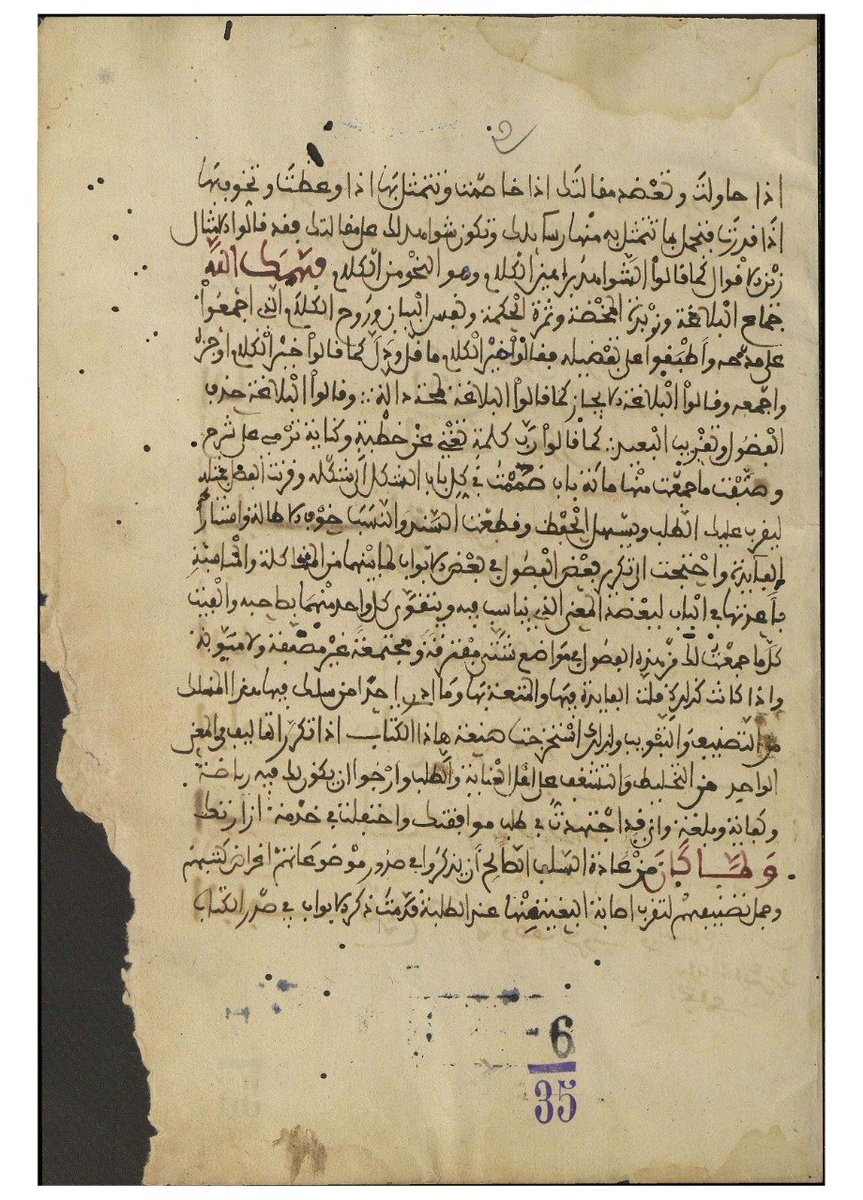 اذا حاولت وتعضد مقالتك اذا خاصمت وتتمثل بها اذا وعظت وتخوف بها
اذا فدرت فتجمل ما تتمثل به منها رسائلك وتكون شواهد لك على مقالتك فقد قالوا الامثال
زين الاقوال كما قالوا الشواهد براهين الكلام وهو النحو من الكلام
جماع البلاغة وزبدة المخضة وثمرة الحكمة ونفس البيان وروح الكلام الذي اجمعوا
على مدحه واطبقوا على تفضيله فقالوا خير الكلام ما قل ودل كما قالوا خير الكلام اوجزه
واجمعه وقالوا البلاغة الايجاز كما قالوا البلاغة لمحة دالة وقالوا البلاغة حذف
الفضول وتقريب البعيد كما قالوا رب كلمة تغني عن خطبة وكناية ترمي على شرح
وصنفت ما جمعت منها مائة باب ضممت في كل باب الشكل الى شكله وقرنت الفصل بمثله
ليقرب عليك الطلب ويسهل الحفظ وقطعت السند والنسب خوف الاطالة وامتثارا
الفايدة واحتجت الى تكرير بعض الفصول في بعض الابواب لما بينهما من المشاكلة
ما عزتها في الباب ليعضد المعنى الذي يناسب فيه ويتقوى كل واحد منهما بصاحبه والفيت
كل ما جمعت لك من هذه الفصول في مواضع شتى مفترقة ومجتمعة غير مصنفة ولا مبوبة
واذا كانت كذلك قلت الفايدة فيها والمتعة بها وما احدا من سلك فيها هذا المسلك
من التصنيف والتبويب ولذلك استخرجت صنعة هاذا الكتاب اذا تكرر التاليف في المعنى
الواحد من التخليط والتشغيب على اهل العناية والطلب وارجوا ان يكون لك فيه رياضة
وكفاية وبلغة واني قد اجتهدت في طلب موافقتك واحتفلت في خدمة ارادتك
ولما كان من عادة السلف الصالح ان يذكروا في صدور موضوعاتهم اغراض كتبهم
وجمل تصنيفهم لتقرب اصابة البغية منها عند الطلبة قدمت ذكر الابواب في صدر الكتاب
6
35